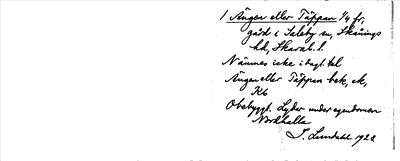 1 Ängen eller Täppan 1/4 fr,
gård i Saleby sn, Skånings
hd, Skarab. l.
Nämnes icke i dagl. tal
Ängen eller Täppan bek, ek,
Kb
Obebyggt. Lyder under egendomen
Nordhalla
S. Lundahl 1928